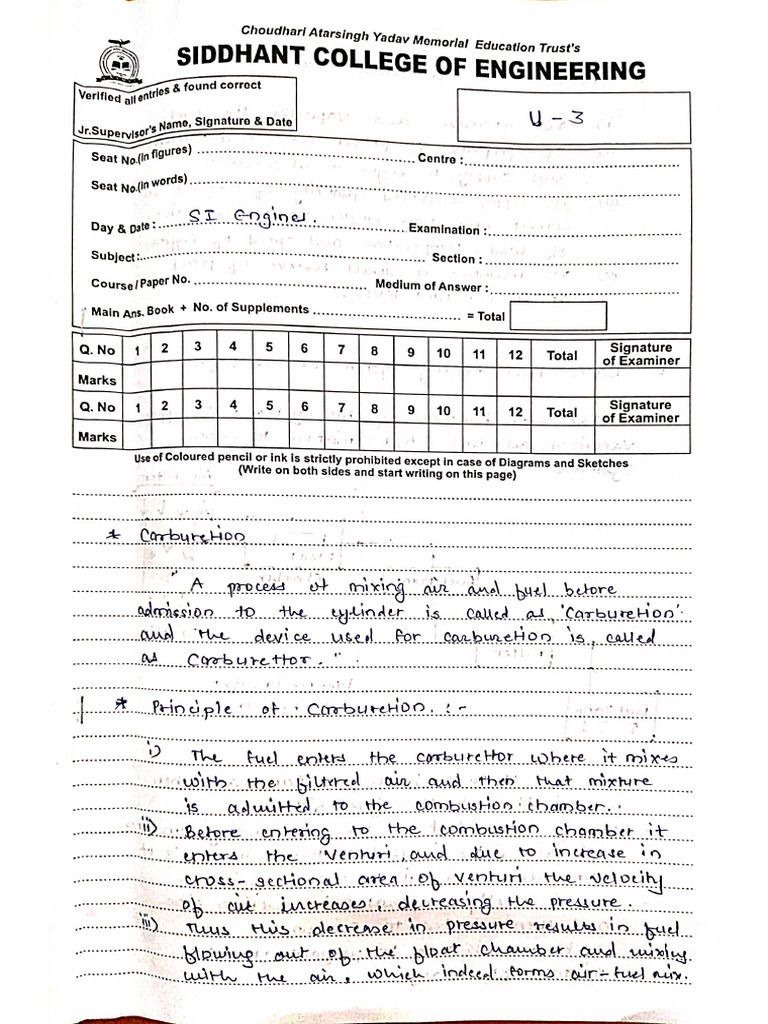 Choudhari Atarsingh Yadav Memorial Education Trust's
SIDDHANT COLLEGE OF ENGINEERING
Verified all entries & found correct
Jr.Supervisor's Name, Signature & Date
U - 3
Seat No.(In figures) Centre :
Seat No.(In words)
Day & Date : SI Engines. Examination :
Subject: Section :
Course/Paper No. Medium of Answer :
Main Ans. Book + No. of Supplements = Total
Q. No 1 2 3 4 5 6 7 8 9 10 11 12 Total Signature of Examiner
Marks
Q. No 1 2 3 4 5 6 7 8 9 10 11 12 Total Signature of Examiner
Marks
Use of Coloured pencil or ink is strictly prohibited except in case of Diagrams and Sketches
(Write on both sides and start writing on this page)
* Carburetion
" A process of mixing air and fuel before
admission to the cylinder is called as, 'Carburetion'
and the device used for carburetion is, called
as Carburettor. "
* Principle of Carburetion. :-
i) The fuel enters the carburettor where it mixes
with the filtered air and then that mixture
is admitted to the combustion chamber.
ii) Before entering to the combustion chamber it
enters the venturi, and due to increase in
cross-sectional area of venturi the velocity
of air increases, decreasing the pressure.
iii) Thus this decrease in pressure results in fuel
flowing out of the float chamber and mixing
with the air, which indeed forms air-fuel mix.